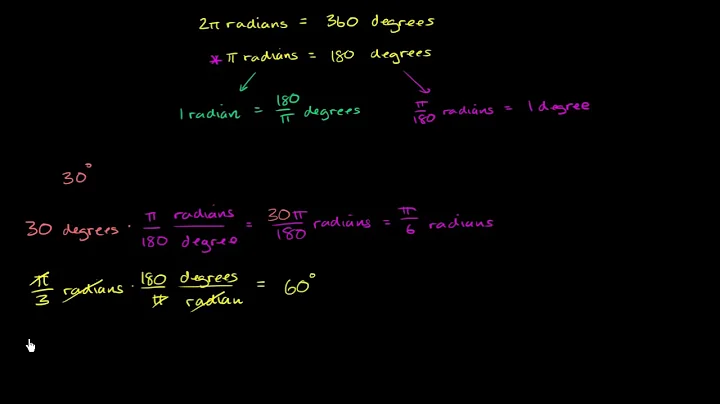 2π radians = 360 degrees
* π radians = 180 degrees
1 radian = 180/π degrees
π/180 radians = 1 degree
30°
30 degrees · π/180 radians/degree = 30π/180 radians = π/6 radians
π/3 radians · 180/π degrees/radian = 60°